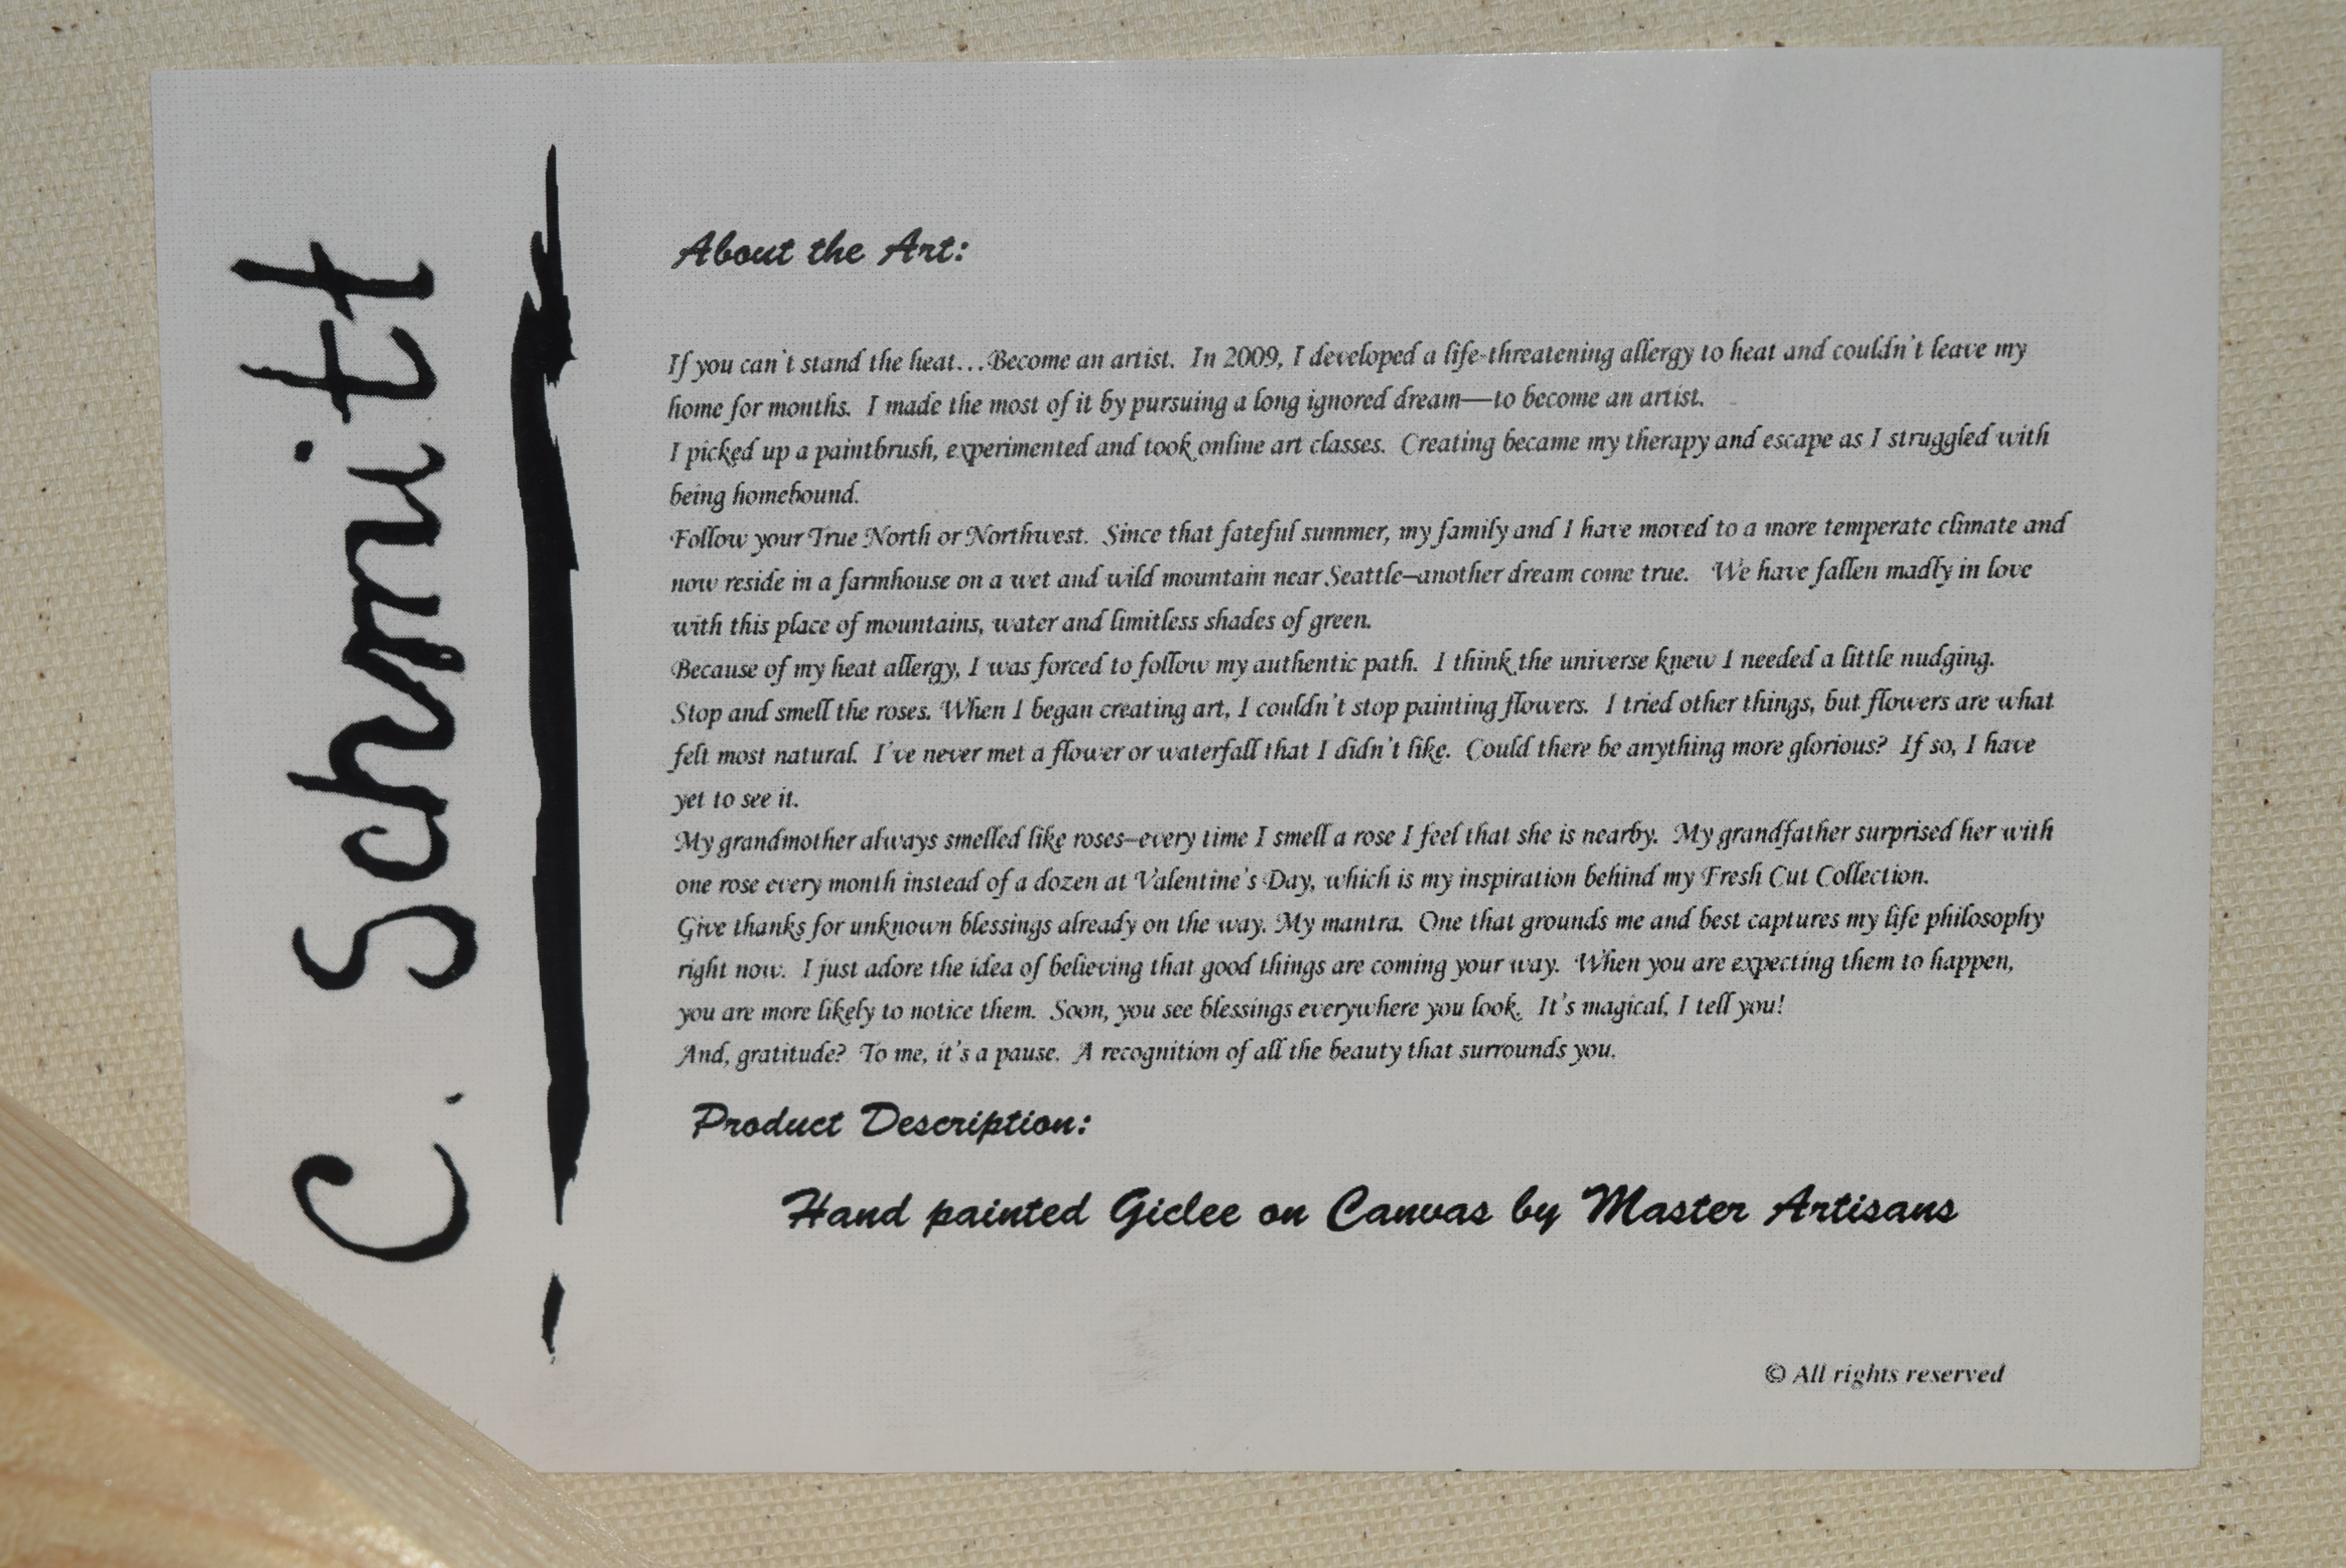 C. Schmitt
About the Art:
If you can't stand the heat...Become an artist. In 2009, I developed a life-threatening allergy to heat and couldn't leave my
home for months. I made the most of it by pursuing a long ignored dream—to become an artist.
I picked up a paintbrush, experimented and took online art classes. Creating became my therapy and escape as I struggled with
being homebound.
Follow your True North or Northwest. Since that fateful summer, my family and I have moved to a more temperate climate and
now reside in a farmhouse on a wet and wild mountain near Seattle–another dream come true. We have fallen madly in love
with this place of mountains, water and limitless shades of green.
Because of my heat allergy, I was forced to follow my authentic path. I think the universe knew I needed a little nudging.
Stop and smell the roses. When I began creating art, I couldn't stop painting flowers. I tried other things, but flowers are what
felt most natural. I've never met a flower or waterfall that I didn't like. Could there be anything more glorious? If so, I have
yet to see it.
My grandmother always smelled like roses–every time I smell a rose I feel that she is nearby. My grandfather surprised her with
one rose every month instead of a dozen at Valentine's Day, which is my inspiration behind my Fresh Cut Collection.
Give thanks for unknown blessings already on the way. My mantra. One that grounds me and best captures my life philosophy
right now. I just adore the idea of believing that good things are coming your way. When you are expecting them to happen,
you are more likely to notice them. Soon, you see blessings everywhere you look. It's magical, I tell you!
And, gratitude? To me, it's a pause. A recognition of all the beauty that surrounds you.
Product Description:
Hand painted Giclee on Canvas by Master Artisans
© All rights reserved